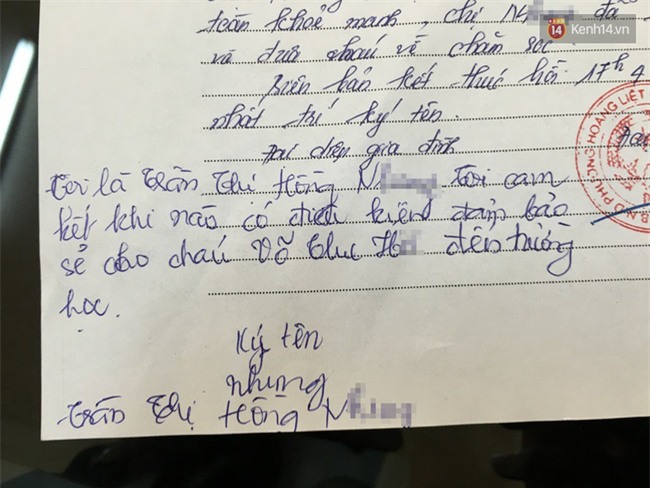 toàn khoẻ mạnh, chị N đã
14 Kenh14.vn
và đưa cháu về chăm sóc.
Biên bản kết thúc hồi 17h 4
nhất trí ký tên.
Đại diện gia đình
Tôi là Trần Thị Hồng N Tôi cam
kết khi nào có điều kiện đảm bảo
sẻ cho cháu Võ H đến trường
học.
Ký tên
nhung
Trần Thị Hồng N
HOÀNG LIỆT